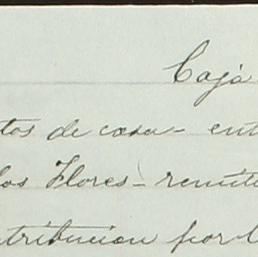 Caja
tos de casa - ent
los Flores - remiti
tribucion por l